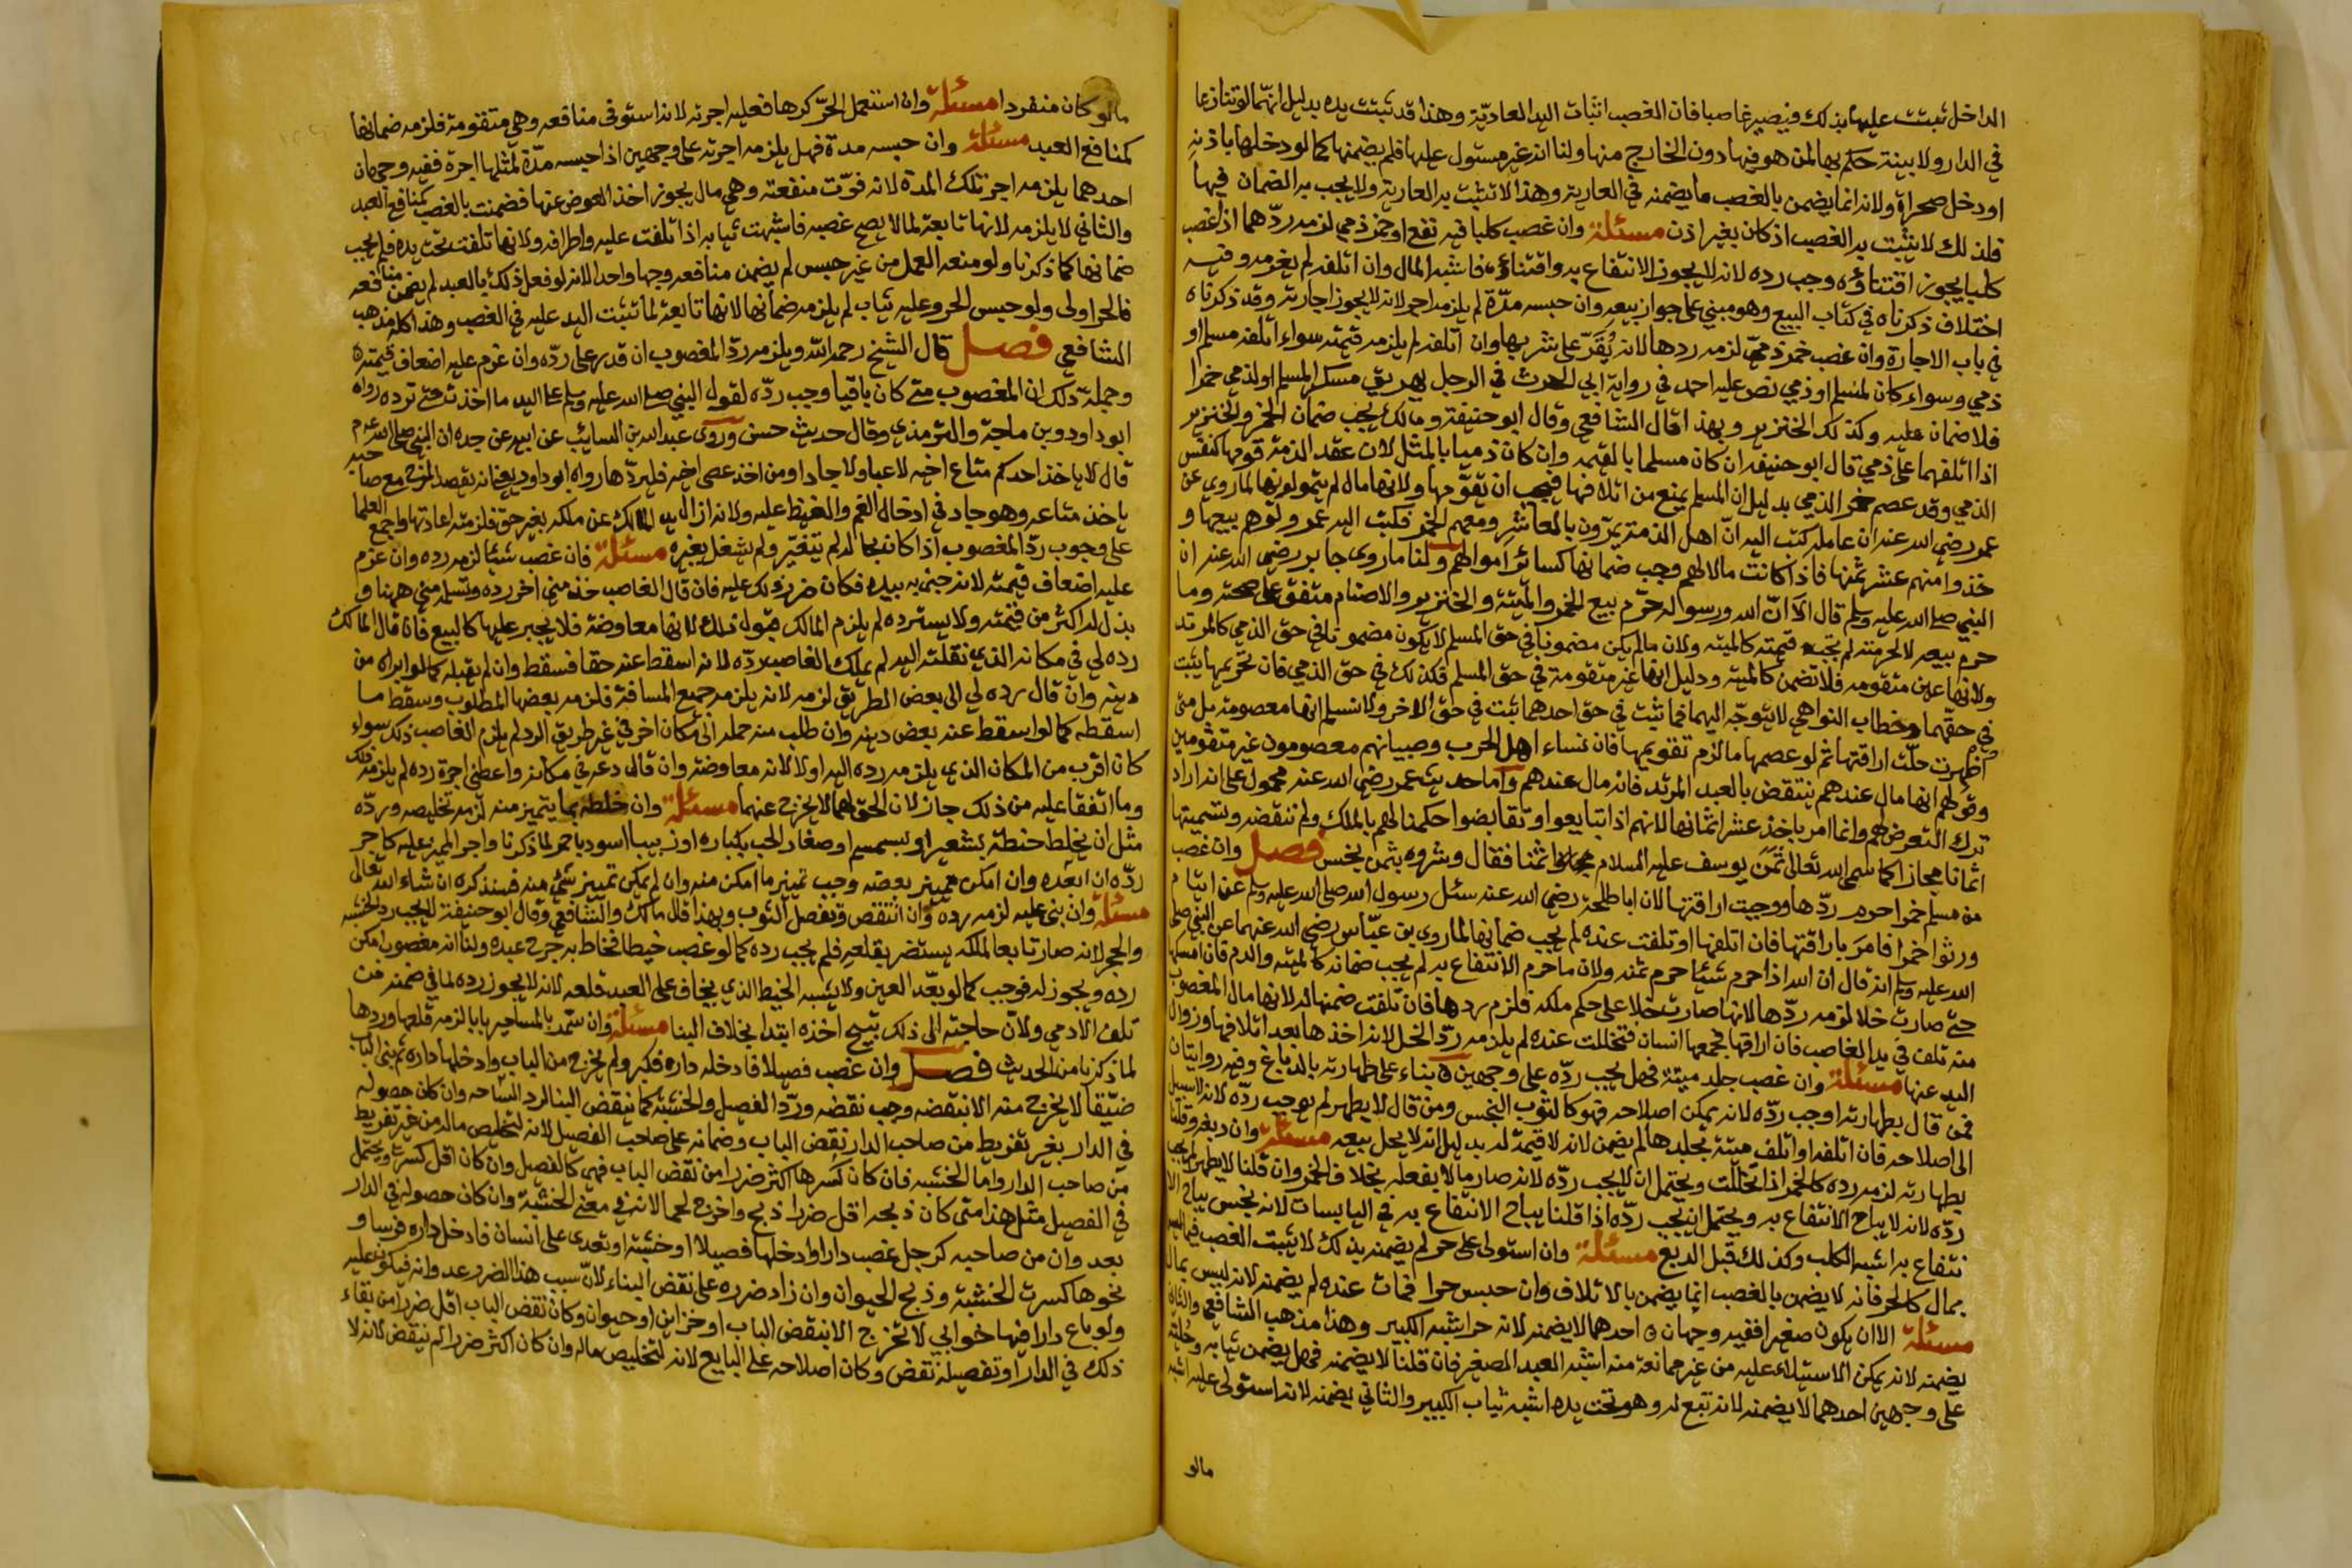 الداخل ثبتت عليها بذلك فيصير غاصبا فان الغصب اثبات اليد العادية وهذا قد ثبتت يده بدليل انهما لو تنازعا
في الدار ولا بينة حكم بها لمن هو فيها دون الخارج منها ولنا انه غير مستول عليها فلم يضمنها كما لو دخلها باذنه
او دخل صحراة ولانه انما يضمن بالغصب ما يضمنه في العارية وهذا لا تثبت به العارية ولا يجب به الضمان فيها
فلذلك لا يثبت به الغصب اذ كان بغير اذن مسئلة وان غصب كلبا فيه نفع او خمر ذمي لزمه ردهما اذا غصب
كلبا يجوز اقتناؤه وجب رده لانه يجوز الانتفاع به واقتناؤه فاشبه المال وان اتلفه لم يغرمه وفيه
اختلاف ذكرناه في كتاب البيع وهو مبني على جواز بيعه وان حبسه مدة لم يلزمه اجر لانه لا يجوز اجارته وقد ذكرناه
في باب الاجارة وان غصب خمر ذمي لزمه ردها لانه يُقَرّ على شربها وان اتلفه لم يلزمه قيمته سواء اتلفه مسلم او
ذمي وسواء كان لمسلم او ذمي نص عليه احمد في رواية ابي الحرث في الرجل يهريق مسكرا لمسلم او لذمي خمرا
فلا ضمان عليه وكذلك الخنزير وبهذا قال الشافعي وقال ابو حنيفة ومالك يجب ضمان الخمر والخنزير
اذا اتلفهما على ذمي قال ابو حنيفة ان كان مسلما بالقيمة وان كان ذميا بالمثل لان عقد الذمة قومها كنفس
الذمي وقد عصم خمر الذمي بدليل ان المسلم يمنع من اتلافها فيجب ان تقوّمها ولانها مال لهم يتمولونها لما روي عن
عمر رضي الله عنه ان عامله كتب اليه انّ اهل الذمة يمرّون بالعاشر ومعهم الخمر فكتب اليه عمر ولوهم بيعها و
خذوا منهم عشر ثمنها فاذا كانت مالا لهم وجب ضمانها كسائر اموالهم ولنا ما روى جابر رضي الله عنه ان
النبي صلى الله عليه وسلم قال الا انّ الله ورسوله حرّم بيع الخمر والميتة والخنزير والاصنام متفق على صحته وما
حرم بيعه لا لحرمته لم تجب قيمته كالميتة ولان ما لم يكن مضمونا في حق المسلم لا يكون مضمونا في حق الذمي كالمرتد
ولانها عين متقومه فلا تضمن كالميتة ودليل انها غير متقومة في حق المسلم فكذلك في حق الذمي فان تحريمها يثبت
في حقهما وخطاب النواهي لا يتوجّه اليهما فما ثبت في حق احدهما ثبت في حق الاخر ولا نسلم انها معصومة بل متى
اُظهرت حلّت اراقتها ثم لو عصمها ما لزم تقويمها فان نساء اهل الحرب وصبيانهم معصومون غير متقومين
وقولهم انها مال عندهم ينتقض بالعبد المرتد فانه مال عندهم واما حديث عمر رضي الله عنه محمول على انه اراد
ترك التعرض لهم وانما امر باخذ عشر اثمانها لانهم اذا تبايعوا وتقابضوا حكمنا لهم بالملك ولم ننقضه وتسميتها
اثمانا مجازا كما سمى الله تعالى ثمَن يوسف عليه السلام ثمنا فقال وشروه بثمن بخس فصل وان غصب
من مسلم خمرا حرم ردّها ووجبت اراقتها لان ابا طلحة رضي الله عنه سئل رسول الله صلى الله عليه وسلم عن ايتام
ورثوا خمرا فامَر باراقتها فان اتلفها او تلفت عنده لم يجب ضمانها لما روى بن عبّاس رضي الله عنهما عن النبي صلى
الله عليه وسلم انه قال ان الله اذا حرم شيئا حرم ثمنه ولان ما حرم الانتفاع به لم يجب ضمانه كالميتة والدم فان امسكها
حتى صارت خلا لزمه ردّها لانها صارت خلا على حكم ملكه فلزم ردها فان تلفت ضمنها له لانها مال المغصوب
منه تلف في يد الغاصب فان اراقها فجمعها انسان فتخللت عنده لم يلزمه ردّ الخل لانه اخذها بعد اتلافها وزوال
اليد عنها مسئلة وان غصب جلد ميتة فهل يجب ردّه على وجهين ه بناء على طهارته بالدباغ وفيه روايتان
فمن قال بطهارته اوجب ردّه لانه يمكن اصلاحه فهو كالثوب النجس ومن قال لا يطهر لم يوجب ردّه لانه لا سبيل
الى اصلاحه فان اتلفه او اتلف ميتة بجلدها لم يضمن لانه لا قيمة له بدليل انه لا يحل بيعه مسئلة وان دبغه وقلنا
بطهارته لزمه رده كالخمر اذا تخللت ويحتمل ان لا يجب ردّه لانه صار مالا بفعله بخلاف الخمر وان قلنا لا يطهر لم يجب
ردّه لانه لا يباح الانتفاع به ويحتمل ان يجب ردّه اذا قلنا يباح الانتفاع به في اليابسات لانه نجس يباح الا
نتفاع به اشبه الكلب وكذلك قبل الدبغ مسئلة وان استولى على حر لم يضمنه بذلك لا يثبت الغصب فيما ليس
بمال كالحر فانه لا يضمن بالغصب انما يضمن بالاتلاف وان حبس حرا فمات عنده لم يضمنه لانه ليس بمال
مسئلة الا ان يكون صغيرا ففيه وجهان ه احدهما لا يضمنه لانه حر اشبه الكبير وهذا مذهب الشافعي والثاني
يضمنه لانه يمكن الاستيلاء عليه من غير ممانعة منه اشبه العبد الصغير فان قلنا لا يضمنه فهل يضمن ثيابه وحليته
على وجهين احدهما لا يضمنه لانه تبع له وهو تحت يده اشبه ثياب الكبير والثاني يضمنه لانه استولى عليه اشبه
مالو
مالو كان منفردا مسئلة وان استعمل الحرّ كرها فعليه اجرته لانه استوفى منافعه وهي متقومة فلزمه ضمانها
كمنافع العبد مسئلة وان حبسه مدة فهل يلزمه اجرته على وجهين اذا حبسه مدّة لمثلها اجرة ففيه وجهان
احدهما يلزمه اجر تلك المدة لانه فوّت منفعته وهي مال يجوز اخذ العوض عنها فضمنت بالغصب كمنافع العبد
والثاني لا يلزمه لانها تابعة لما لا يصح غصبه فاشبهت ثيابه اذا تلفت عليه واطرافه ولانها تلفت تحت يده فلم يجب
ضمانها كما ذكرنا ولو منعه العمل من غير حبس لم يضمن منافعه وجها واحدا لانه لو فعل ذلك بالعبد لم يضمن منافعه
فالحر اولى ولو حبس الحر وعليه ثياب لم يلزمه ضمانها لانها تابعة لما تثبت اليد عليه في الغصب وهذا كله مذهب
الشافعي فصل قال الشيخ رحمه الله ويلزمه ردّ المغصوب ان قدر على ردّه وان غرم عليه اضعاف قيمته ه
وجملة ذلك ان المغصوب متى كان باقيا وجب ردّه لقول النبي صلى الله عليه وسلم على اليد ما اخذت حتى ترده رواه
ابو داود وبن ماجة والترمذي وقال حديث حسن وروى عبد الله بن السائب عن ابيه عن جده ان النبي صلى الله عليه وسلم
قال لا ياخذ احدكم متاع اخيه لاعبا ولا جادا ومن اخذ عصى اخيه فليردّها رواه ابو داود يعني انه يقصد المزح مع صاحبه
ياخذ متاعه وهو جاد في ادخال الغم والغيظ عليه ولانه ازال يد المالك عن ملكه بغير حق فلزمته اعادتها واجمع العلما
على وجوب ردّ المغصوب اذا كان بحاله لم يتغيّر ولم يشغل بغيره مسئلة فان غصب شيئا لزمه رده وان غرم
عليه اضعاف قيمته لانه جنى به بيده فكان ضرر ذلك عليه فان قال الغاصب خذ مني اجر رده وتسلمه مني ههنا و
بذل له اكثر من قيمته ولا يسترده لم يلزم المالك قبول ذلك لانها معاوضة فلا يجبر عليها كالبيع فان قال المالك
رده لي في مكانه الذي نقلته اليه لم يملك الغاصب ردّه لانه اسقط عنه حقا فسقط وان لم يقبله كما لو ابراه من
دينه وان قال رده لي الى بعض الطريق لزمه لانه يلزمه جميع المسافة فلزمه بعضها المطلوب وسقط ما
اسقطه كما لو اسقط عنه بعض دينه وان طلب منه حمله الى مكان اخر في غير طريق الرد لم يلزم الغاصب ذلك سواء
كان اقرب من المكان الذي يلزمه رده اليه او لا لانه معاوضة وان قال دعه في مكانه واعطني اجرة رده لم يلزمه ذلك
وما اتفقا عليه من ذلك جاز لان الحق لهما لا يخرج عنهما مسئلة وان خلطه بما يتميز منه لزمه تخليصه وردّه
مثل ان يخلط حنطة بشعير او بسمسم او صغار الحب بكباره او زبيبا اسود باحمر لما ذكرنا واجر المميز عليه كاجر
ردّه ان ابعَده وان امكن تمييز بعضه وجب تمييز ما امكن منه وان لم يمكن تمييز شئ منه فسنذكره ان شاء الله تعالى
مسئلة وان بنى عليه لزمه رده وان انتقض وتفصل الثوب وبهذا قال مالك والشافعي وقال ابو حنيفة لا يجب رد الخشبة
والحجر لانه صار تابعا لملكه يستضر بقلعه فلم يجب رده كما لو غصب خيطا فخاط به جرح عبده ولنا انه مغصوب امكن
رده ويجوز له فوجب كما لو بعّد العين ولا يشبه الخيط الذي يخاف على العبد قلعه لانه لا يجوز رده لما في ضمنه من
تلف الادمي ولانّ حاجته الى ذلك تبيح اخذه ابتدا بخلاف البنا مسئلة وان سمّر بالمسامير بابا لزمه قلعها وردها
لما ذكرنا من الحديث فصل وان غصب فصيلا فادخله داره فكبر ولم يخرج من الباب وادخلها داره ثم بنى الباب
ضيّقا لا يخرج منه الا بنقضه وجب نقضه وردّ الفصيل والخشبة كما ينقض البنا لرد الساحه وان كان حصوله
في الدار بغير تفريط من صاحب الدار نقض الباب وضمانه على صاحب الفصيل لانه لتخليص ماله من غير تفريط
من صاحب الدار واما الخشبه فان كان كَسرها اكثر ضررا من نقض الباب فهي كالفصيل وان كان اقل كسرت ويحتمل
في الفصيل مثل هذا متى كان ذبحه اقل ضررا ذبح واخرج لحما لانه في معنى الخشبة وان كان حصوله في الدار
بعدوان من صاحبه كرجل غصب دارا وادخلها فصيلا او خشبة او تعدى على انسان فادخل داره فرسا و
نحوها كسرت الخشبة وذبح الحيوان وان زاد ضرره على نقض البناء لانّ سبب هذا الضرر عدوانه فيكون عليه
ولو باع دارا فيها خوابي لا تخرج الا بنقض الباب او خزاين او حيوان وكان نقض الباب اقل ضررا من بقاء
ذلك في الدار او تفصيله نقض وكان اصلاحه على البايع لانه لتخليص ماله وان كان اكثر ضررا لم ينقض لانه لا